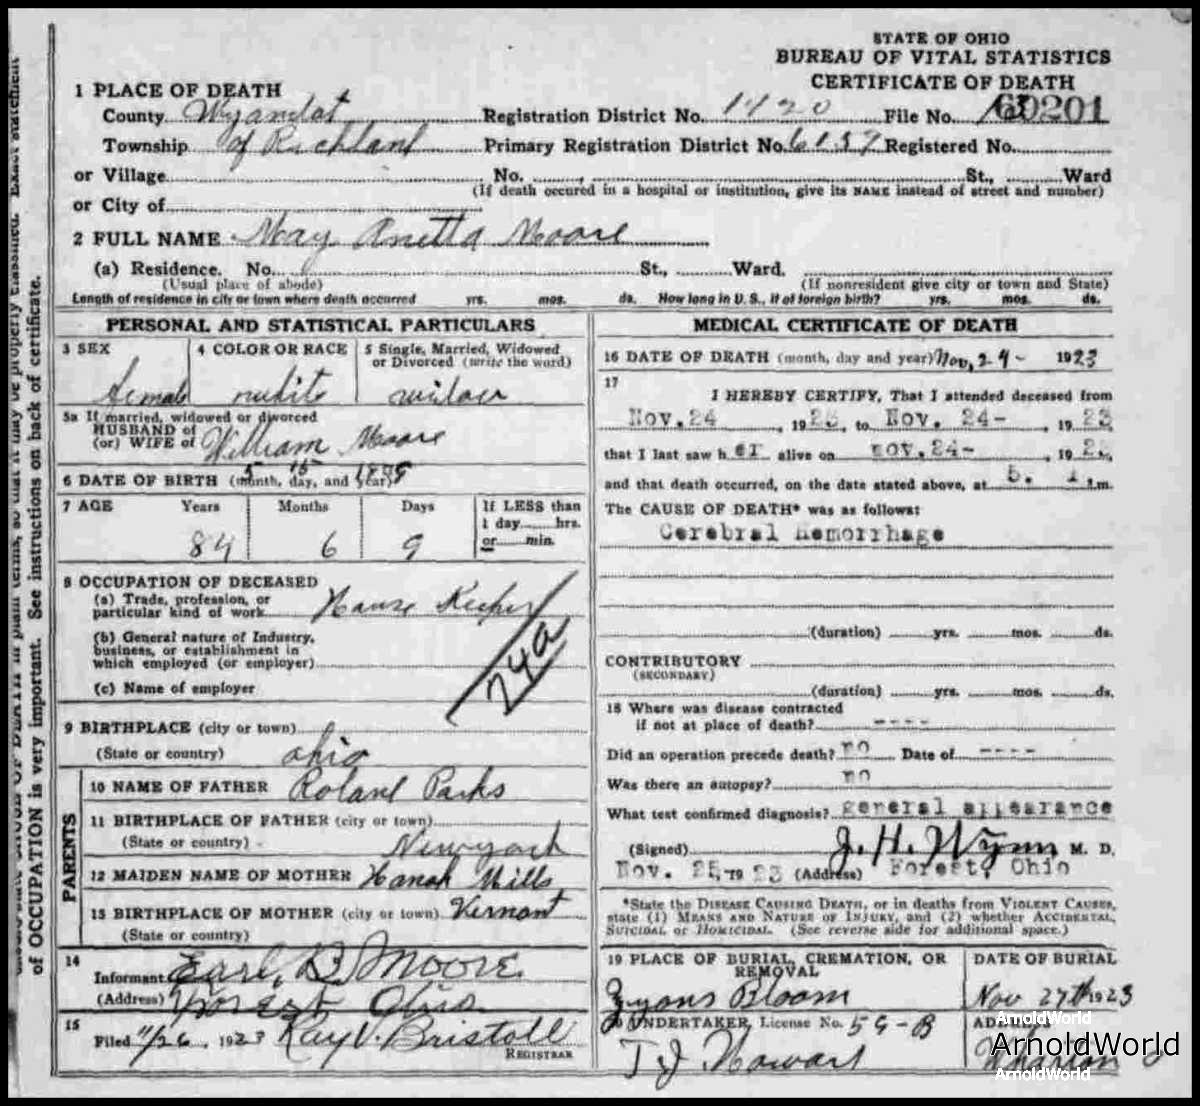 STATE OF OHIO
BUREAU OF VITAL STATISTICS
CERTIFICATE OF DEATH
1 PLACE OF DEATH
County Wyandot Registration District No. 1420 File No. 60201
Township of Richland Primary Registration District No. 6137 Registered No.
or Village No. , St., Ward
(If death occured in a hospital or institution, give its NAME instead of street and number)
or City of
2 FULL NAME May Anetta Moore
(a) Residence. No. St., Ward.
(Usual place of abode) (If nonresident give city or town and State)
Length of residence in city or town where death occurred yrs. mos. ds. How long in U. S., if of foreign birth? yrs. mos. ds.
PERSONAL AND STATISTICAL PARTICULARS
3 SEX 4 COLOR OR RACE 5 Single, Married, Widowed
or Divorced (write the word)
female white
5a If married, widowed or divorced
HUSBAND of
(or) WIFE of William Moore
5 15
6 DATE OF BIRTH (month, day, and year)
7 AGE Years Months Days If LESS than
1 day hrs.
84 6 9 or min.
8 OCCUPATION OF DECEASED
(a) Trade, profession, or
particular kind of work House Keeper
(b) General nature of Industry,
business, or establishment in
which employed (or employer)
74a
(c) Name of employer
9 BIRTHPLACE (city or town)
(State or country) Ohio
PARENTS
10 NAME OF FATHER Rolanl Parks
11 BIRTHPLACE OF FATHER (city or town)
(State or country) Newyork
12 MAIDEN NAME OF MOTHER Hanah Mills
13 BIRTHPLACE OF MOTHER (city or town) Vermont
(State or country)
14
Informant Earl, B. Moore
(Address) Forest Ohio
15
Filed 11/26, 1923 Ray V. Bristoll
REGISTRAR
MEDICAL CERTIFICATE OF DEATH
16 DATE OF DEATH (month, day and year) Nov, 24 - 1923
17
I HEREBY CERTIFY, That I attended deceased from
Nov. 24, 1923, to Nov. 24-, 1923,
that I last saw her alive on nov. 24-, 192
and that death occurred, on the date stated above, at 5. m.
The CAUSE OF DEATH* was as follows:
Cerebral Hemorrhage
(duration) yrs. mos. ds.
CONTRIBUTORY
(SECONDARY)
(duration) yrs. mos. ds.
18 Where was disease contracted
if not at place of death? ----
Did an operation precede death? no Date of ----
Was there an autopsy? no
What test confirmed diagnosis? general appearance
(Signed) J. H. Wynn M. D.
Nov. 25, 1923 (Address) Forest, Ohio
*State the DISEASE CAUSING DEATH, or in deaths from VIOLENT CAUSES,
state (1) MEANS AND NATURE OF INJURY, and (2) whether ACCIDENTAL,
SUICIDAL or HOMICIDAL. (See reverse side for additional space.)
19 PLACE OF BURIAL, CREMATION, OR
REMOVAL
DATE OF BURIAL
Bloom Nov 27th 1923
20 UNDERTAKER, License No. 59-B
T J Howart Wharton O
ArnoldWorld
ArnoldWorld
ArnoldWorld
of OCCUPATION is very important. See instructions on back of certificate.